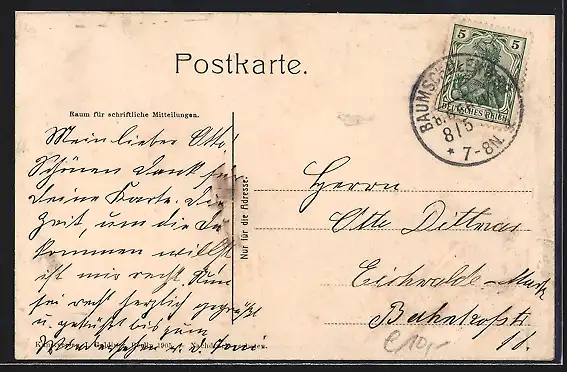 Postkarte.
5 5
DEUTSCHES REICH
BAUMSCHULEN
8/5
* 7-8N.
Raum für schriftliche Mitteilungen.
Mein lieber Otto!
Schönen Dank für
Deine Karte. Die
Zeit, um die Du
kommen willst
ist mir recht. Nun
sei recht herzlich gegrüßt
u. geküßt bis zum
Wiedersehen v. d. Toni
Nur für die Adresse.
Herrn
Otto Dittmar
Eichwalde-Mark
Bahnhofstr
Berlin 1905